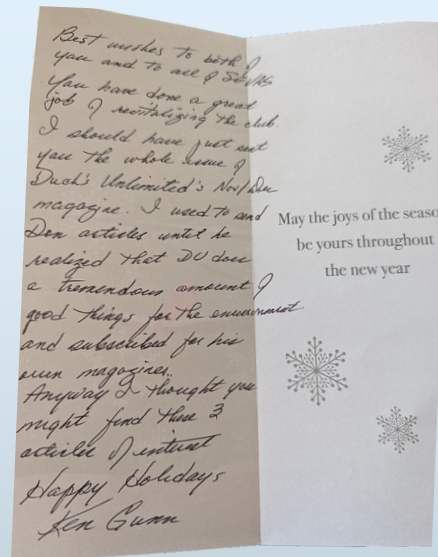 Best wishes to both of
you and to all of SCVAS
You have done a great
job of revitalizing the club.
I should have just sent
you the whole issue of
Duck's Unlimited's Nov/Dec
magazine. I used to send
Don articles until he
realized that DU does
a tremendous amount of
good things for the environment
and subscribed for his
own magazines..
Anyway I thought you
might find these 3
articles of interest
Happy Holidays
Ken Gunn
May the joys of the seaso
be yours throughout
the new year